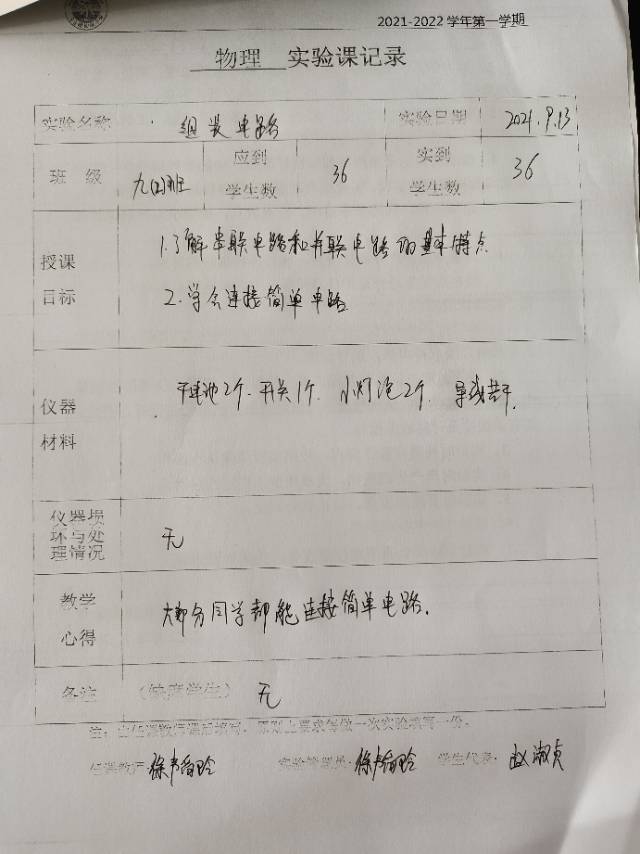 2021-2022学年第一学期
物理 实验课记录
实验名称 组装电路 实验日期 2021.9.13
班级 九(2)班 应到学生数 36 实到学生数 36
授课目标
1.了解串联电路和并联电路的基本特点
2.学会连接简单电路
仪器材料
干电池2个.开关1个.小灯泡2个.导线若干.
仪器损坏与处理情况 无
教学心得 大部分同学都能连接简单电路.
备注 (缺席学生) 无
注:由任课教师课后填写,原则上要求每做一次实验填写一份。
任课教师: 实验管理员: 学生代表:赵淑贞